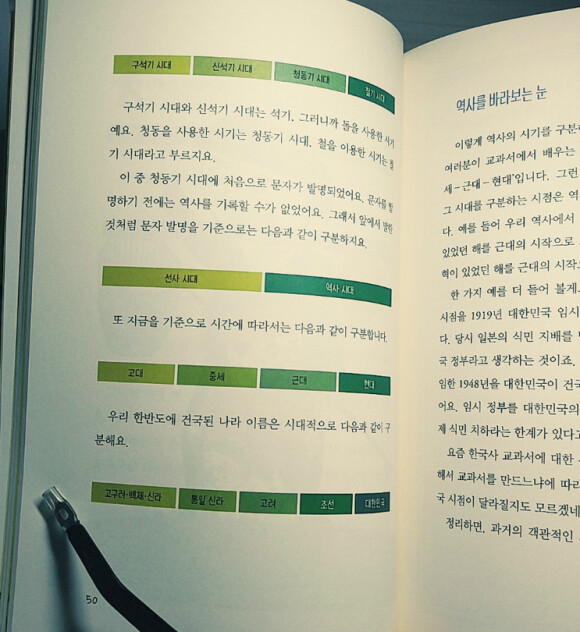 구석기 시대 신석기 시대 청동기 시대 철기 시대
구석기 시대와 신석기 시대는 석기, 그러니까 돌을 사용한 시기
예요. 청동을 사용한 시기는 청동기 시대, 철을 이용한 시기는 철
기 시대라고 부르지요.
이 중 청동기 시대에 처음으로 문자가 발명되었어요. 문자를 발
명하기 전에는 역사를 기록할 수가 없었어요. 그래서 앞에서 말한
것처럼 문자 발명을 기준으로는 다음과 같이 구분하지요.
선사 시대 역사 시대
또 지금을 기준으로 시간에 따라서는 다음과 같이 구분합니다.
고대 중세 근대 현대
우리 한반도에 건국된 나라 이름은 시대적으로 다음과 같이 구
분해요.
고구려·백제·신라 통일 신라 고려 조선 대한민국
50
역사를 바라보는 눈
이렇게 역사의 시기를 구분하
여러분이 교과서에서 배우는
세-근대-현대'입니다. 그런
그 시대를 구분하는 시점은 역
다. 예를 들어 우리 역사에서
있었던 해를 근대의 시작으로
혁이 있었던 해를 근대의 시작
한 가지 예를 더 들어 볼게.
시점을 1919년 대한민국 임시
다. 당시 일본의 식민 지배를
국 정부라고 생각하는 것이죠.
임한 1948년을 대한민국이 건국
어요. 임시 정부를 대한민국의
제 식민 치하라는 한계가 있다고
요즘 한국사 교과서에 대한
해서 교과서를 만드느냐에 따라
국 시점이 달라질지도 모르겠네
정리하면, 과거의 객관적인